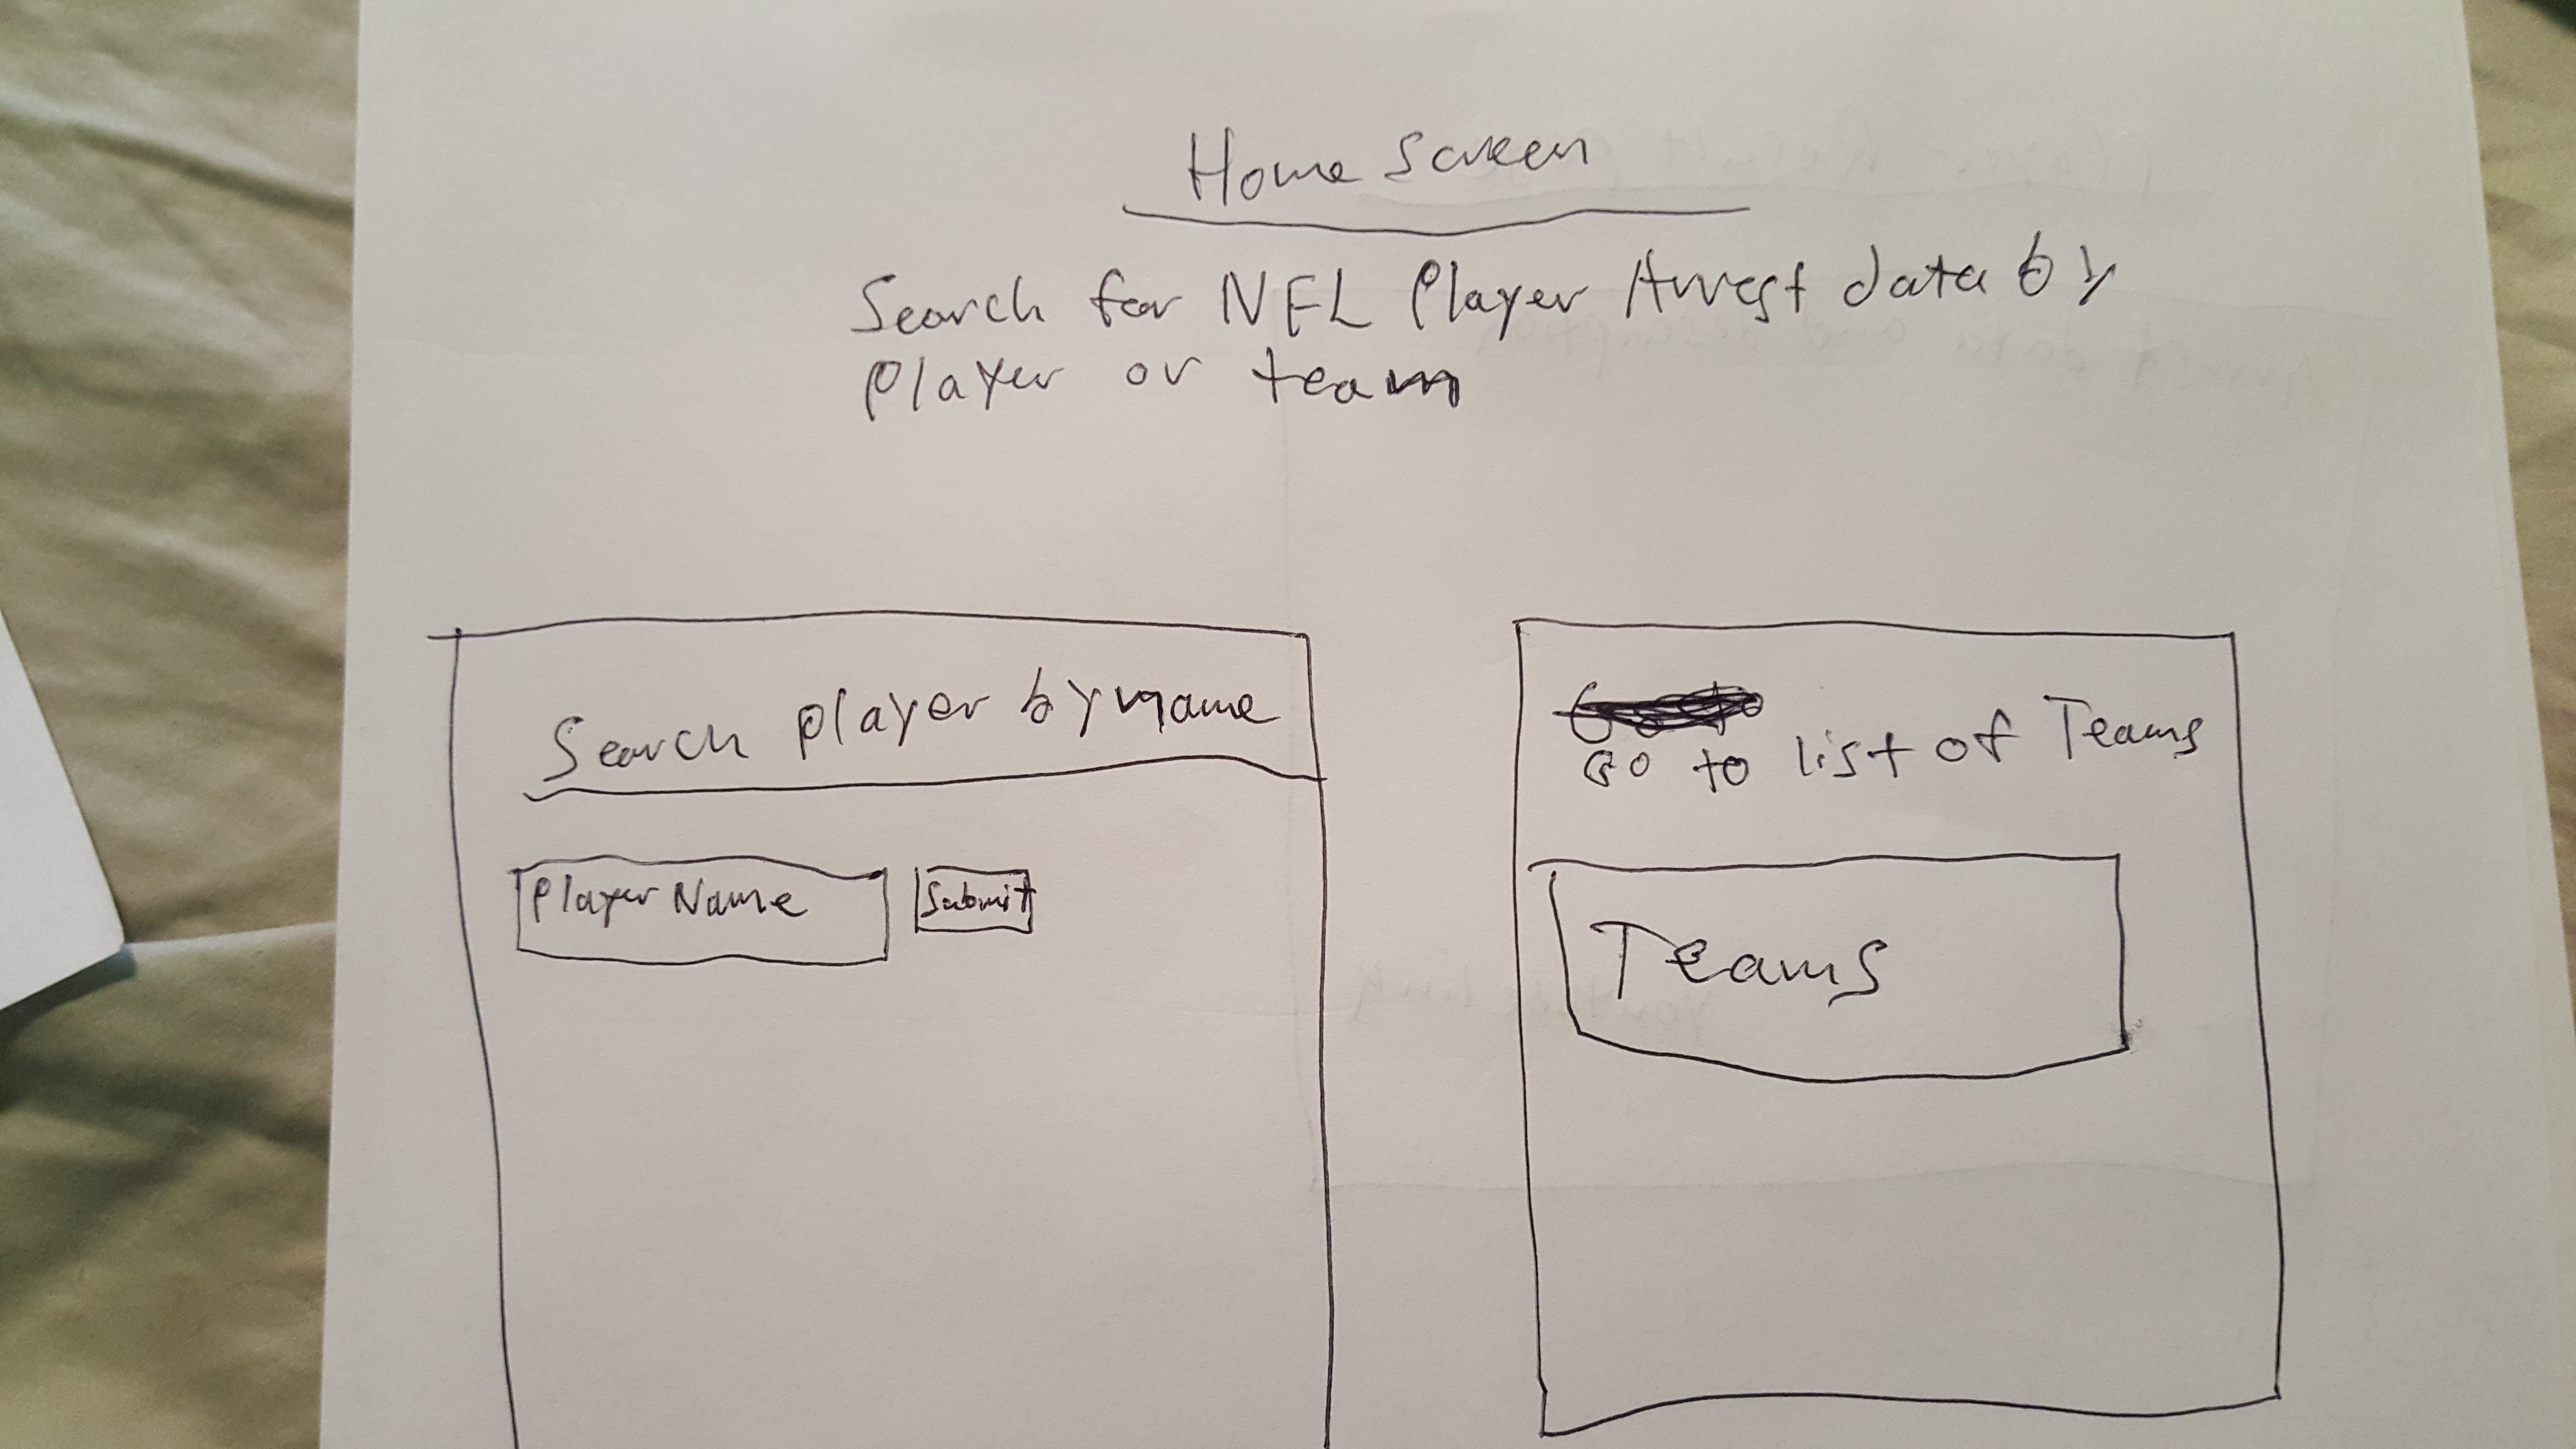 Home Screen
Search for NFL Player Arrest data by
Player or team
Search player by name
Player Name
Submit
Go to list of Teams
Teams